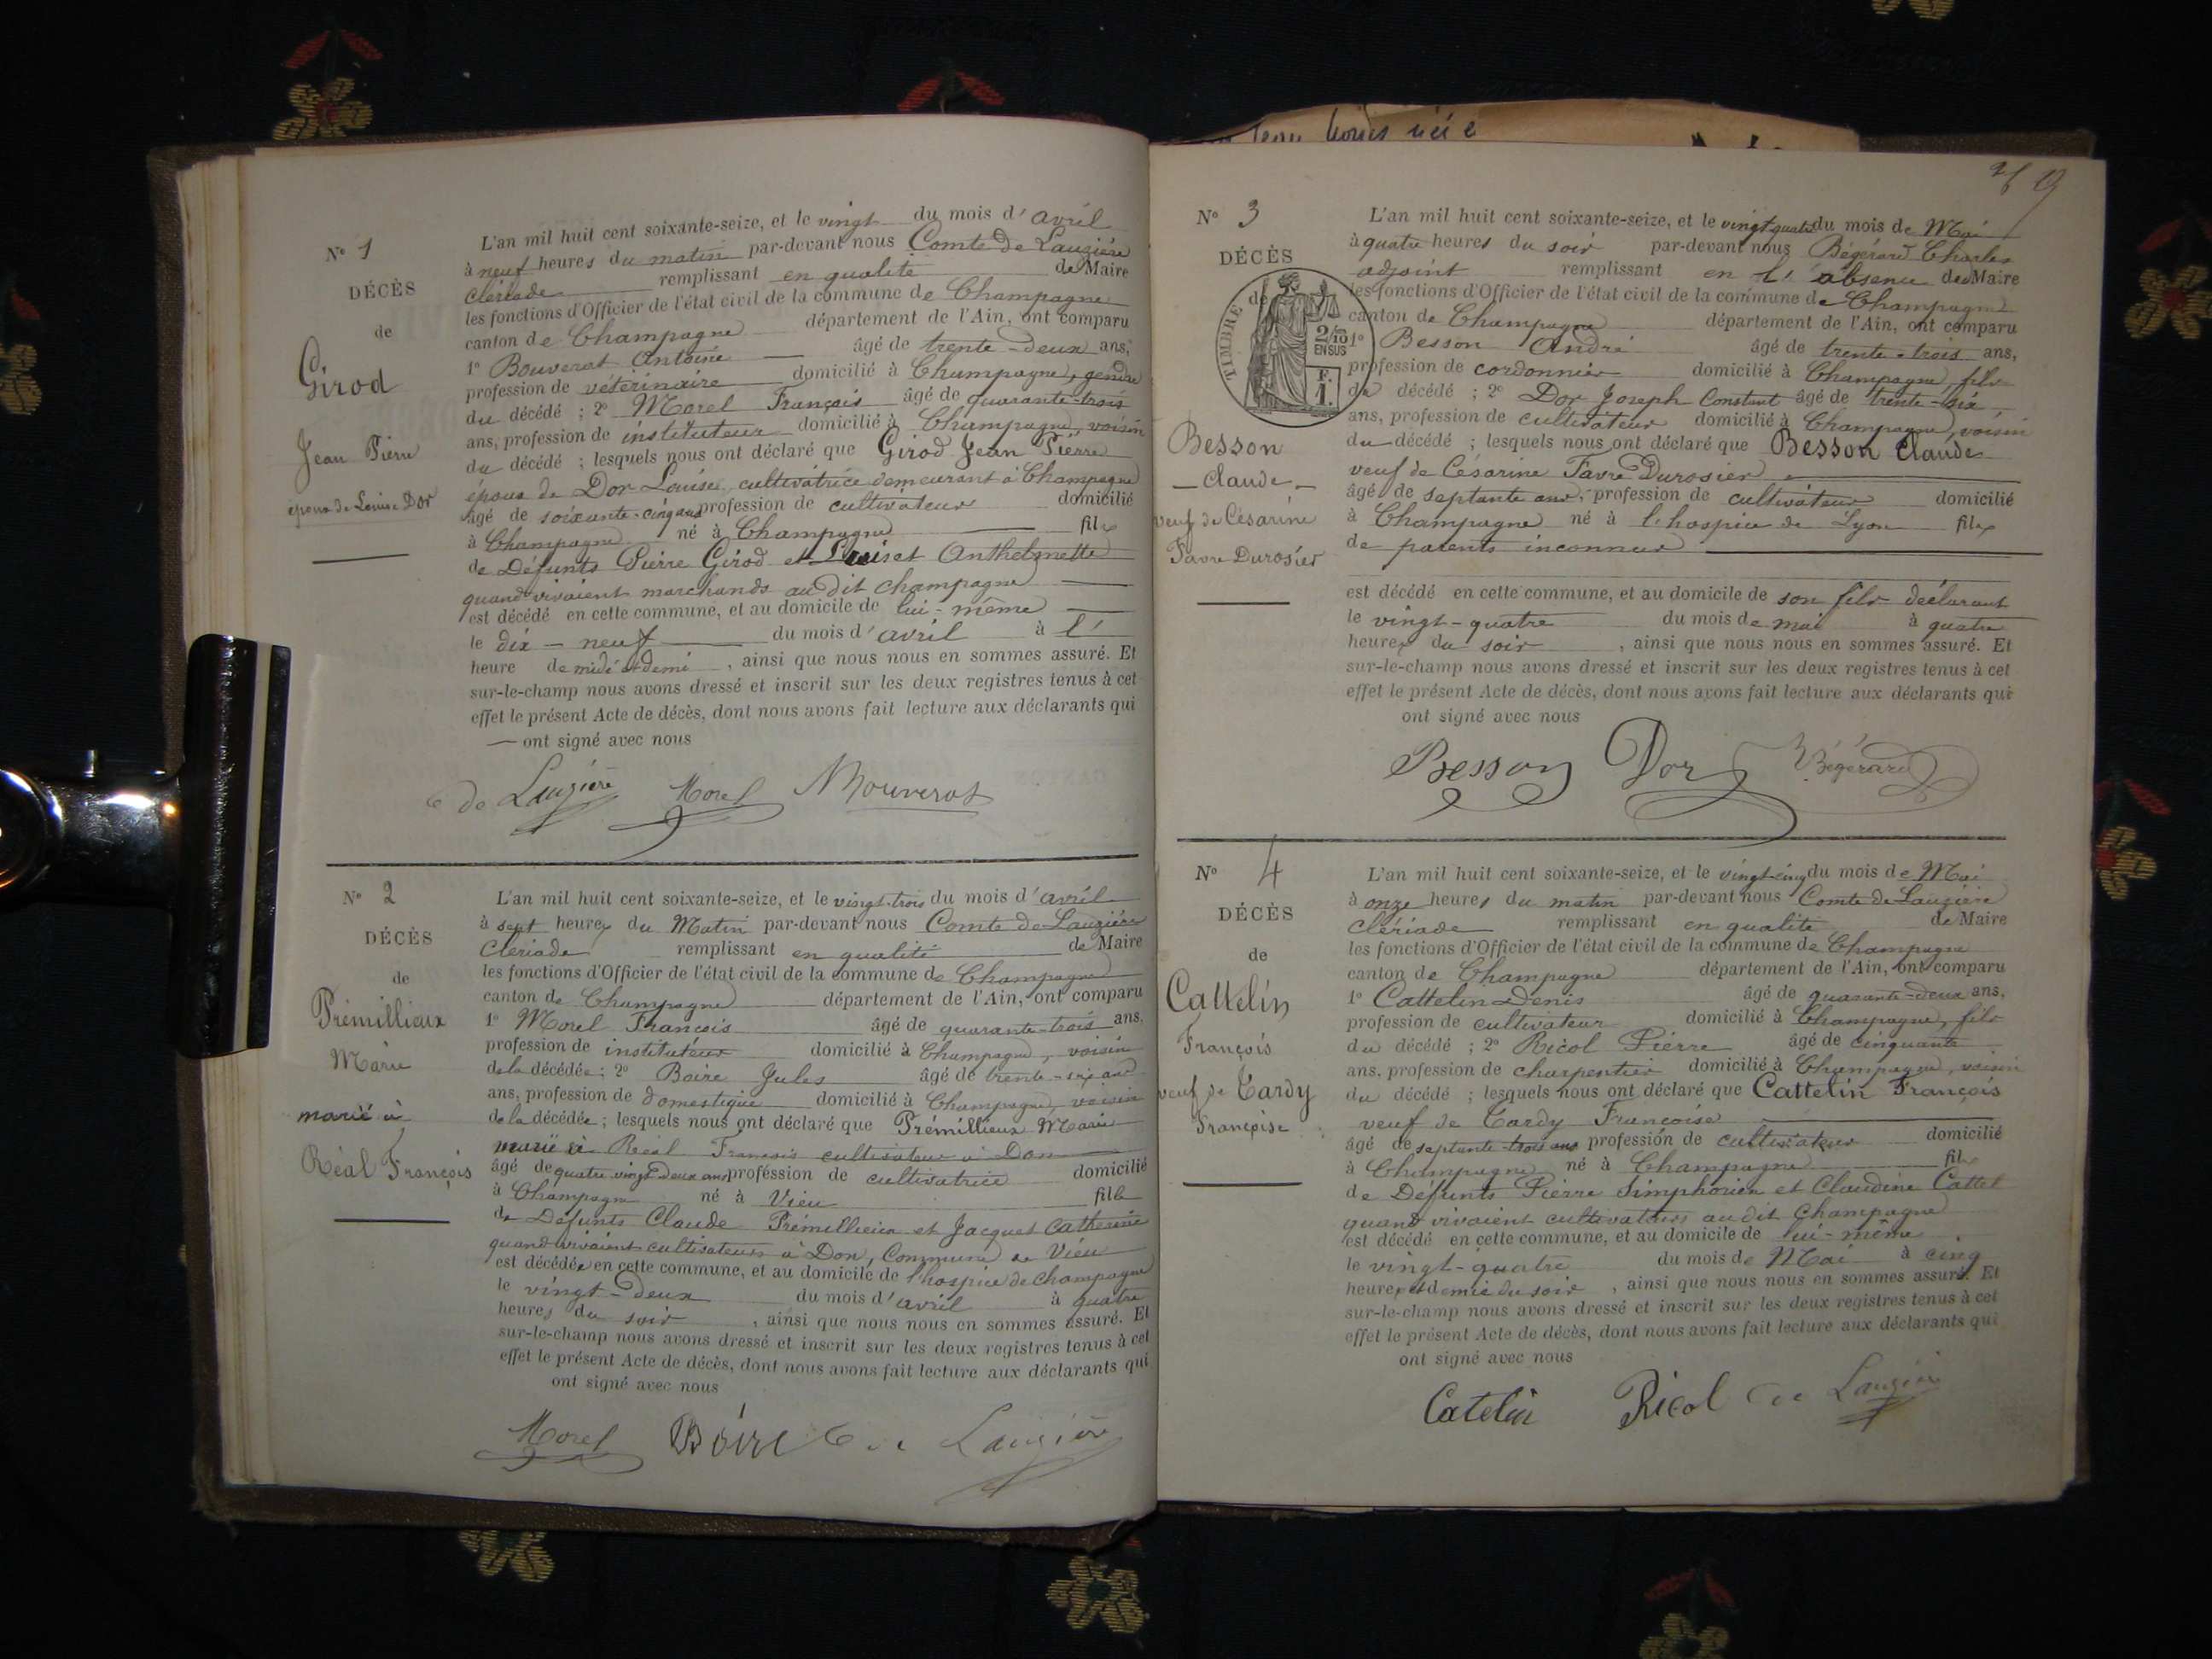 Nº 1
DÉCÈS
de
Girod
Jean Pierre
époux de Louise Dor
L'an mil huit cent soixante-seize, et le vingt du mois d'avril
à neuf heures du matin par-devant nous Comte De Lauzière
Clériade remplissant en qualité de Maire
les fonctions d'Officier de l'état civil de la commune de Champagne
canton de Champagne département de l'Ain, ont comparu
1º Bouverat Antoine âgé de trente-deux ans,
profession de vétérinaire domicilié à Champagne, gendre
du décédé ; 2º Morel François âgé de quarante-trois
ans, profession de instituteur domicilié à Champagne, voisin
du décédé ; lesquels nous ont déclaré que Girod Jean Pierre
époux de Dor Louise, cultivatrice demeurant à Champagne
âgé de soixante-cinq ans profession de cultivateur domicilié
à Champagne né à Champagne fils
de Défunts Pierre Girod et Louiset Anthelmette
quand vivaient marchands au dit champagne
est décédé en cette commune, et au domicile de lui-même
le dix-neuf du mois d'avril à l'
heure de midi et demi, ainsi que nous nous en sommes assuré. Et
sur-le-champ nous avons dressé et inscrit sur les deux registres tenus à cet
effet le présent Acte de décès, dont nous avons fait lecture aux déclarants qui
— ont signé avec nous
de Lauzière Morel Bouverat
Nº 2
DÉCÈS
de
Prémillieux
Marie
marié à
Réal François
L'an mil huit cent soixante-seize, et le vingt-trois du mois d'avril
à sept heures du Matin par-devant nous Comte De Lauzière
Clériade remplissant en qualité de Maire
les fonctions d'Officier de l'état civil de la commune de Champagne
canton de Champagne département de l'Ain, ont comparu
1º Morel François âgé de quarante-trois ans.
profession de instituteur domicilié à Champagne, voisin
de la décédée ; 2º Boire Jules âgé de trente-six ans
ans, profession de domestique domicilié à Champagne, voisin
de la décédée ; lesquels nous ont déclaré que Prémillieux Marie
marié à Réal François cultivateur à Don
âgé de quatre vingt deux ans profession de cultivatrice domicilié
à Champagne né à Vieu fille
de Défunts Claude Prémillieux et Jacquet Catherine
quand vivaient cultivateurs à Don, Commune de Vieu
est décédée en cette commune, et au domicile de l'hospice de Champagne
le vingt-deux du mois d'avril à quatre
heures du soir, ainsi que nous nous en sommes assuré. Et
sur-le-champ nous avons dressé et inscrit sur les deux registres tenus à cet
effet le présent Acte de décès, dont nous avons fait lecture aux déclarants qui
ont signé avec nous
Morel Boire de Lauzière
Nº 3
DÉCÈS
de
TIMBRE
2/10
EN SUS
F.
1.
Besson
Claude
veuf de Césarine
Favre Durosier
L'an mil huit cent soixante-seize, et le vingt quatre du mois de Mai
à quatre heures du soir par-devant nous Bégérard Charles
adjoint remplissant en l'absence de Maire
les fonctions d'Officier de l'état civil de la commune de Champagne
canton de Champagne département de l'Ain, ont comparu
1º Besson André âgé de trente-trois ans,
profession de cordonnier domicilié à Champagne, fils
du décédé ; 2º Dor Joseph Constant âgé de trente-six
ans, profession de cultivateur domicilié à Champagne, voisin
du décédé ; lesquels nous ont déclaré que Besson Claude
veuf de Césarine Favre Durosier
âgé de septante ans, profession de cultivateur domicilié
à Champagne né à l'hospice de Lyon fils
de parents inconnus
est décédé en cette commune, et au domicile de son fils déclarant
le vingt-quatre du mois de mai à quatre
heures du soir, ainsi que nous nous en sommes assuré. Et
sur-le-champ nous avons dressé et inscrit sur les deux registres tenus à cet
effet le présent Acte de décès, dont nous avons fait lecture aux déclarants qui
ont signé avec nous
Besson Dor Bégérard
Nº 4
DÉCÈS
de
Cattelin
François
veuf de Tardy
Françoise
L'an mil huit cent soixante-seize, et le vingt-cinq du mois de Mai
à onze heures du matin par-devant nous Comte De Lauzière
Clériade remplissant en qualité de Maire
les fonctions d'Officier de l'état civil de la commune de Champagne
canton de Champagne département de l'Ain, ont comparu
1º Cattelin Denis âgé de quarante-deux ans,
profession de cultivateur domicilié à Champagne, fils
du décédé ; 2º Ricol Pierre âgé de cinquante
ans, profession de charpentier domicilié à Champagne, voisin
du décédé ; lesquels nous ont déclaré que Cattelin François
veuf de Tardy Françoise
âgé de septante-trois ans profession de cultivateur domicilié
à Champagne né à Champagne fils
de Défunts Pierre Simphorien et Claudine Cattet
quand vivaient cultivateurs audit Champagne
est décédé en cette commune, et au domicile de lui-même
le vingt-quatre du mois de Mai à cinq
heures et demie du soir, ainsi que nous nous en sommes assuré. Et
sur-le-champ nous avons dressé et inscrit sur les deux registres tenus à cet
effet le présent Acte de décès, dont nous avons fait lecture aux déclarants qui
ont signé avec nous
Catelin Ricol de Lauzière